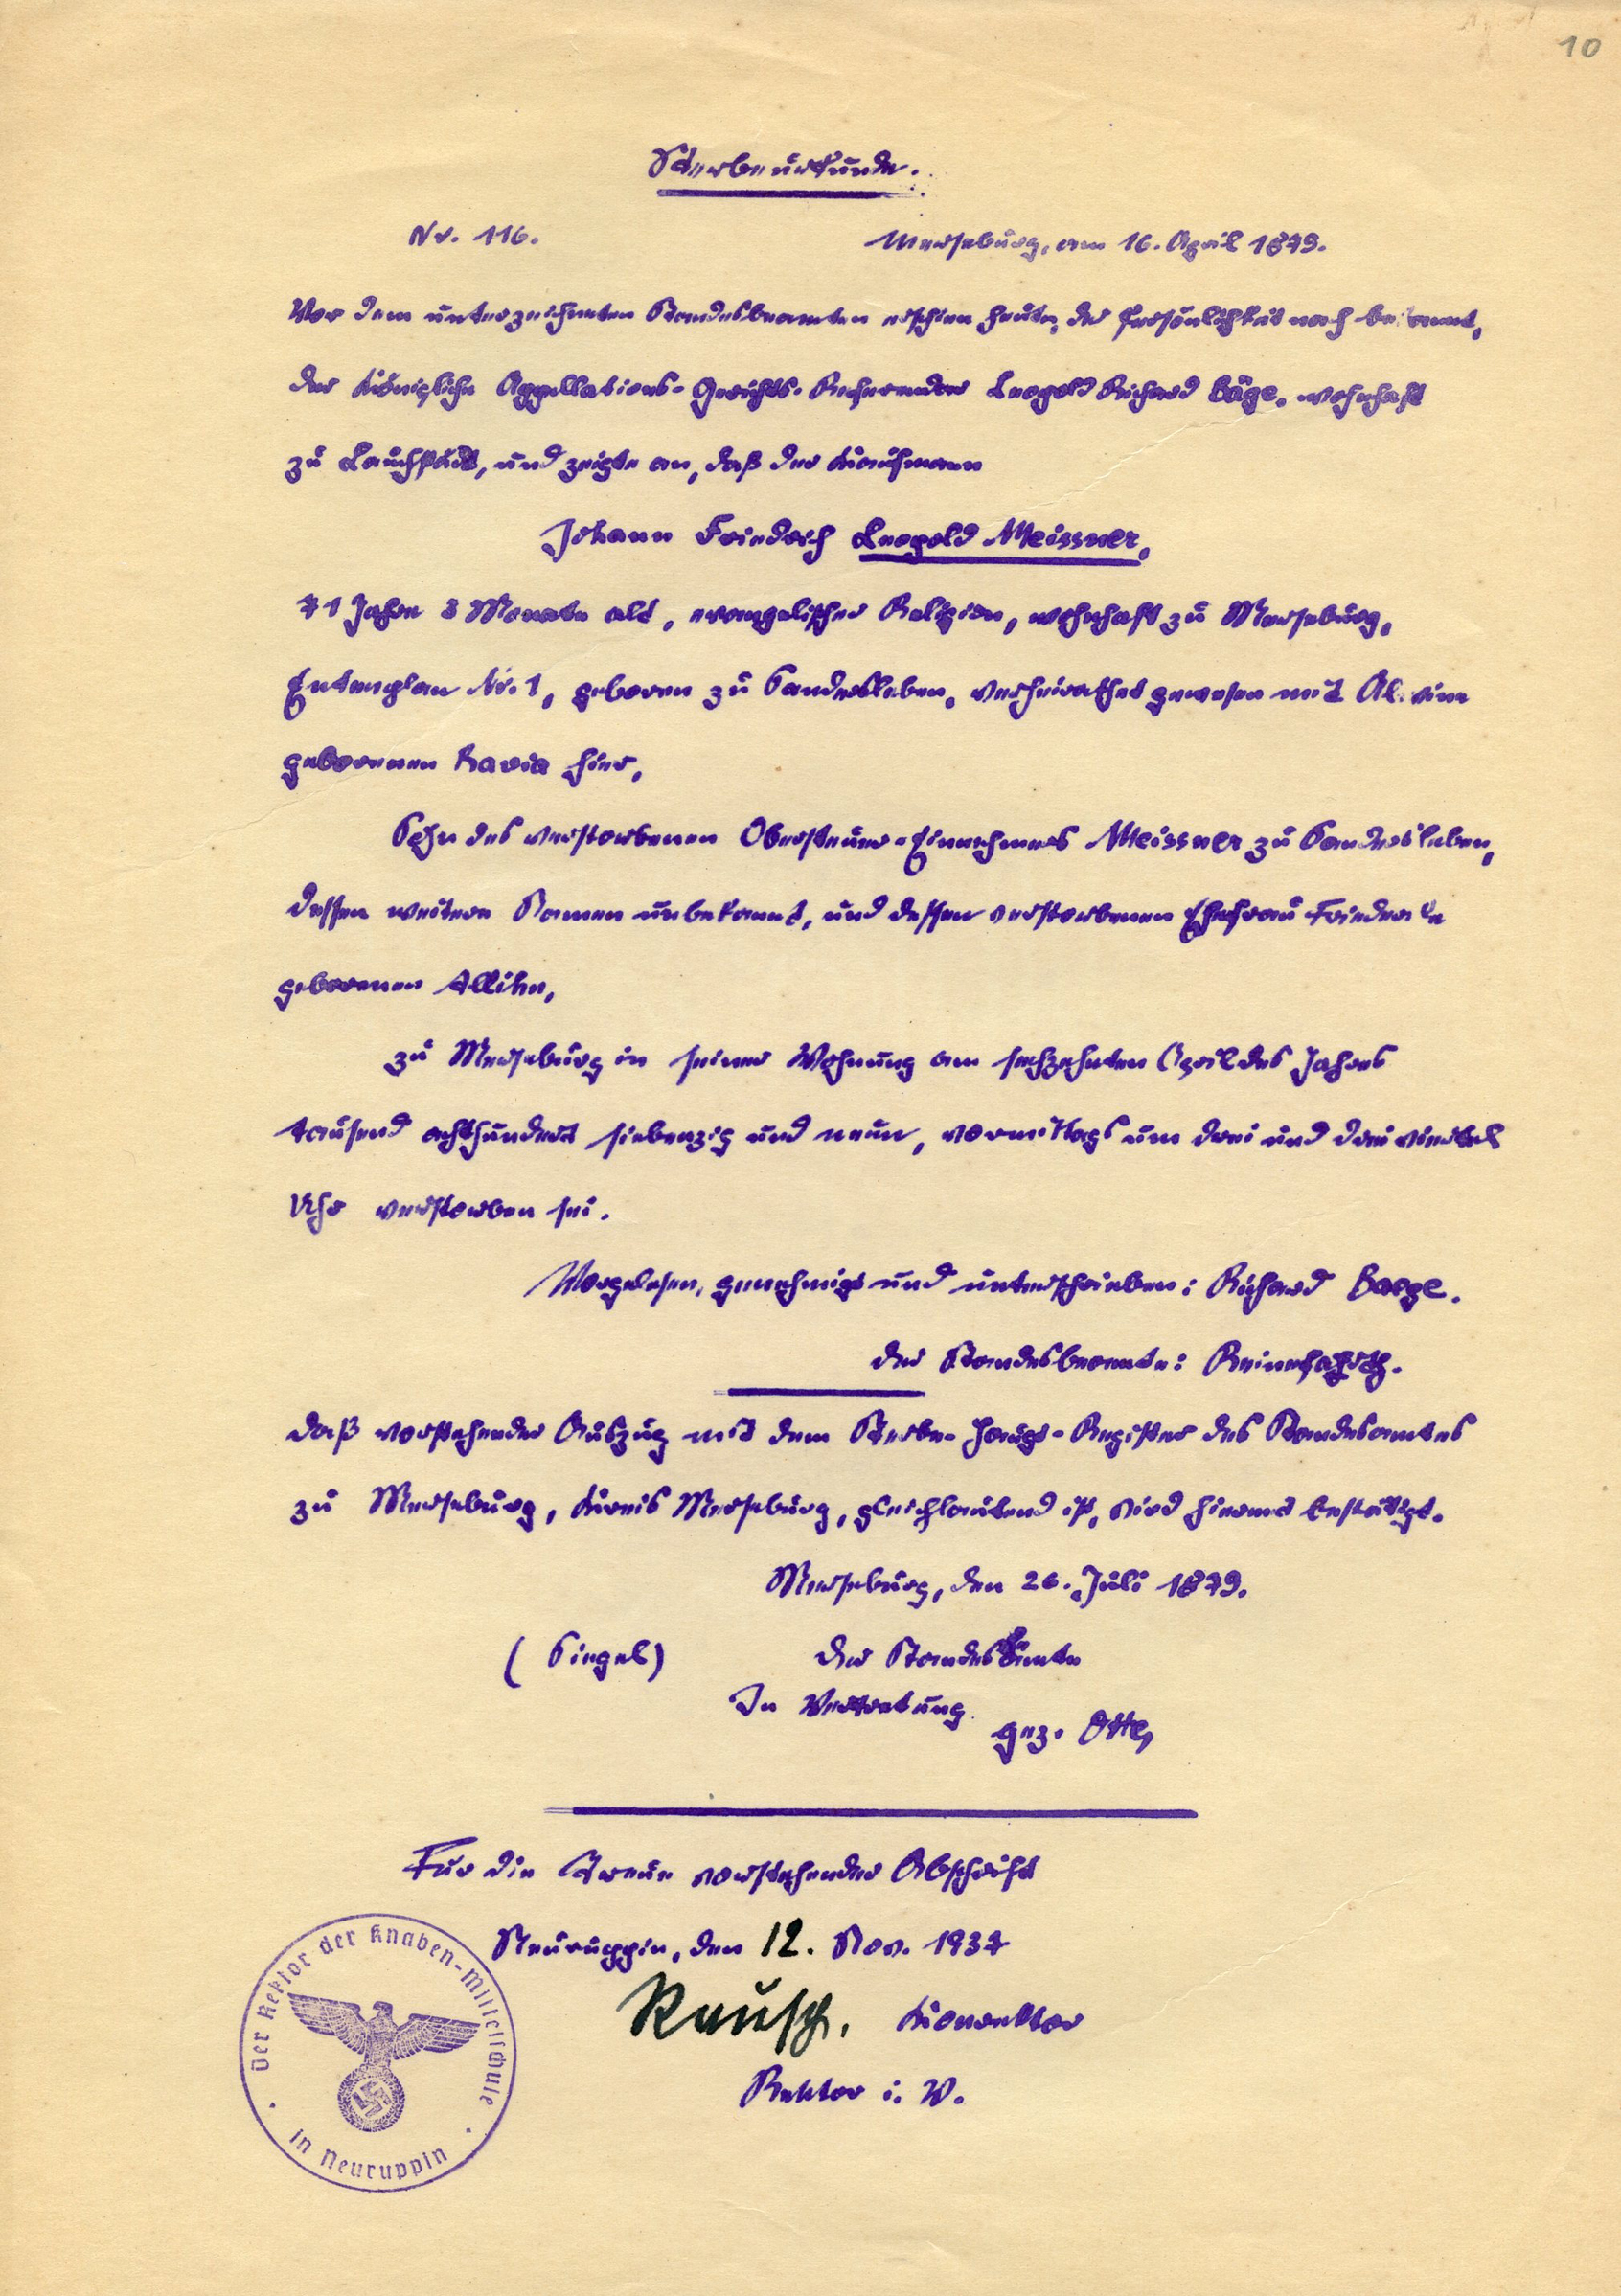 10
Sterbeurkunde.
Nr. 116.
Merseburg, am 16. April 1879.
Vor dem unterzeichneten Standesbeamten erschien heute, der Persönlichkeit nach bekannt,
der Königliche Appellations-Gerichts-Referendar Leopold Richard Bäge, wohnhaft
zu Lauchstädt, und zeigte an, daß der Kaufmann
Johann Friedrich Leopold Meissner,
71 Jahre 3 Monate alt, evangelischer Religion, wohnhaft zu Merseburg,
Entenplan Nr. 1, geboren zu Sandersleben, verheirathet gewesen mit
geborenen Ravia hier,
Sohn des verstorbenen Obersteuer-Einnehmers Meissner zu Sandersleben,
dessen weitere Namen unbekannt, und dessen verstorbenen Ehefrau Friederike
geborenen Allihn,
zu Merseburg in seiner Wohnung am sechzehnten April des Jahres
tausend achthundert siebenzig und neun, vormittags um drei und drei viertel
Uhr verstorben sei.
Vorgelesen, genehmigt und unterschrieben: Richard Baege.
Der Standesbeamte:
Daß vorstehender Auszug mit dem Sterbe-Haupt-Register des Standesamtes
zu Merseburg, Kreis Merseburg, gleichlautend ist, wird hiermit bestätigt.
Merseburg, den 26. Juli 1879.
(Siegel) Der Standesbeamte
In Vertretung
gez. Otte,
Für die Treue vorstehender Abschrift
Neuruppin, den 12. Nov. 1937
Rausch. Konrektor
Rektor i. V.
Der Rektor der Knaben-Mittelschule
in Neuruppin